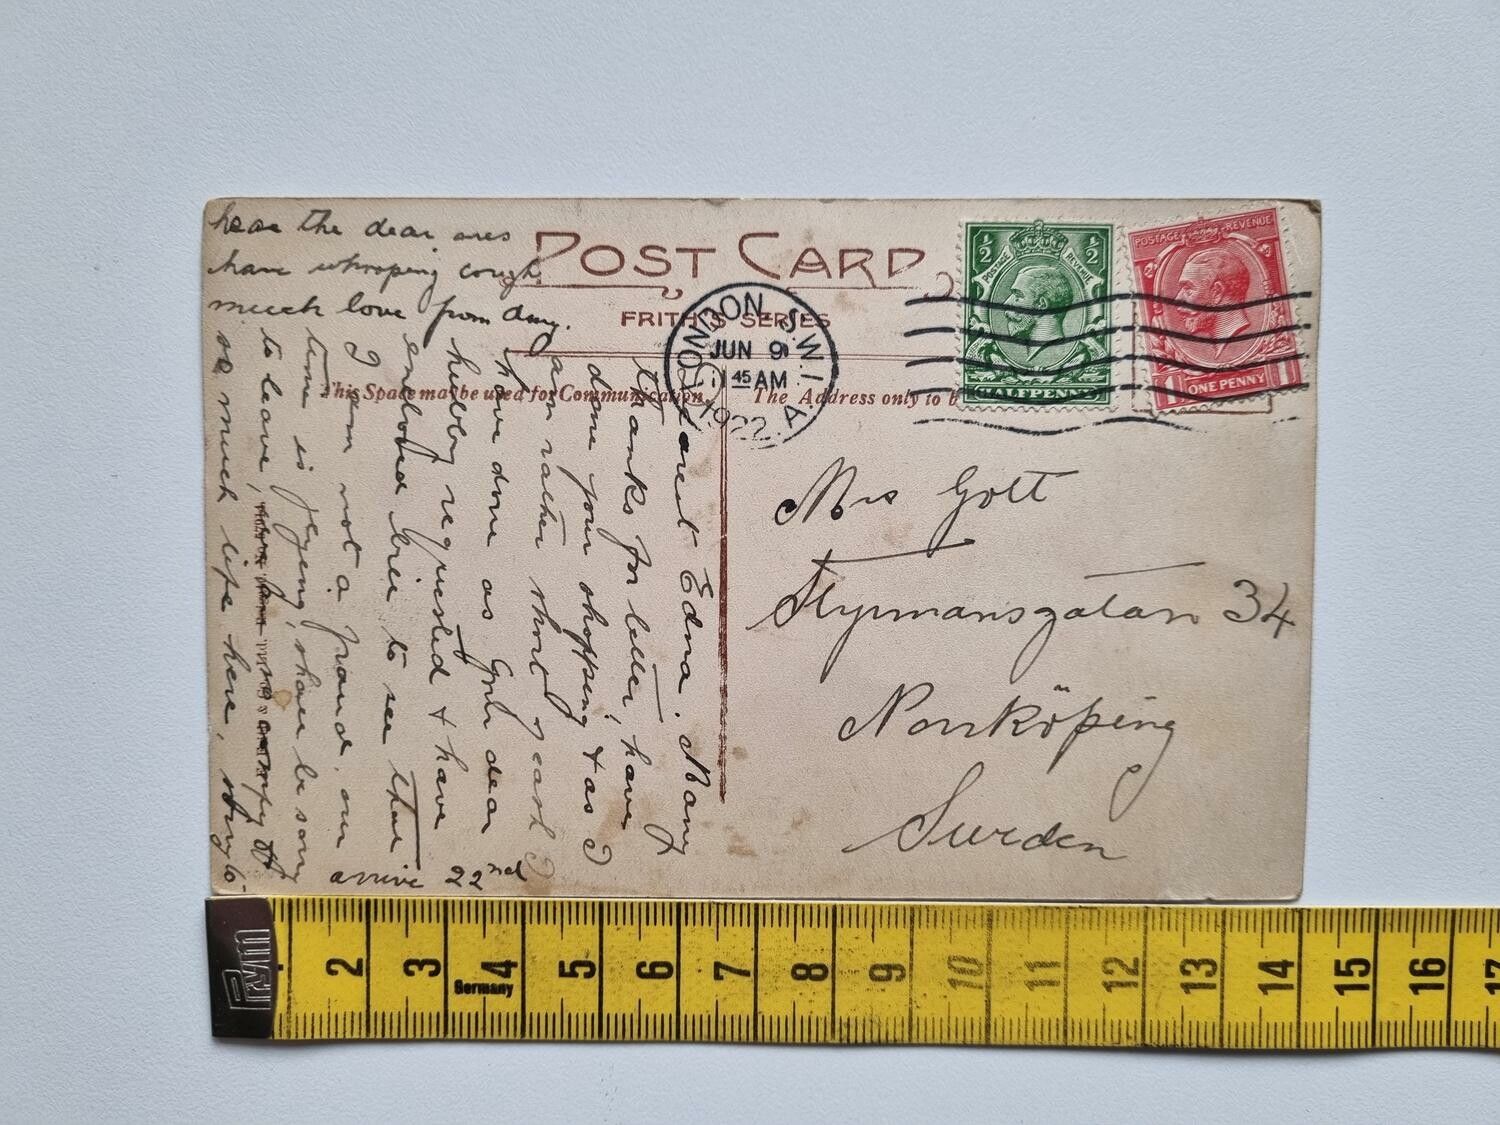 POST CARD
FRITH'S SERIES
This Space may be used for Communication.
The Address only to b
LONDON. S.W.1.
JUN 9
11 45 AM
1922. A.
POSTAGE REVENUE
½ ½
HALFPENNY
POSTAGE REVENUE
1 1
ONE PENNY
Mrs Gott
Styrmansgatan 34
Norrköping
Sweden
Dearest Edna. Many
thanks for letter, have
done your shopping & as I
am rather short of cash I
have done as your dear
hubby requested & have
enclosed here to see that
I am not a fraud, our
time is flying, shall be sorry
to leave,
so much life here, sorry to
arrive 22nd
hear the dear ones
have whooping cough
much love from
Germany
2 3 4 5 6 7 8 9 10 11 12 13 14 15 16 17